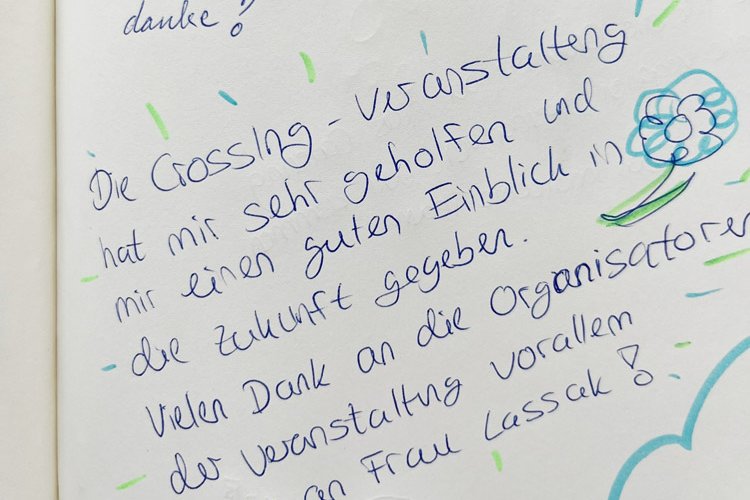 danke!
Die Crossing-Veranstaltung
hat mir sehr geholfen und
mir einen guten Einblick in
die Zukunft gegeben.
Vielen Dank an die Organisatoren
der Veranstaltung vorallem
an Frau Lassak!